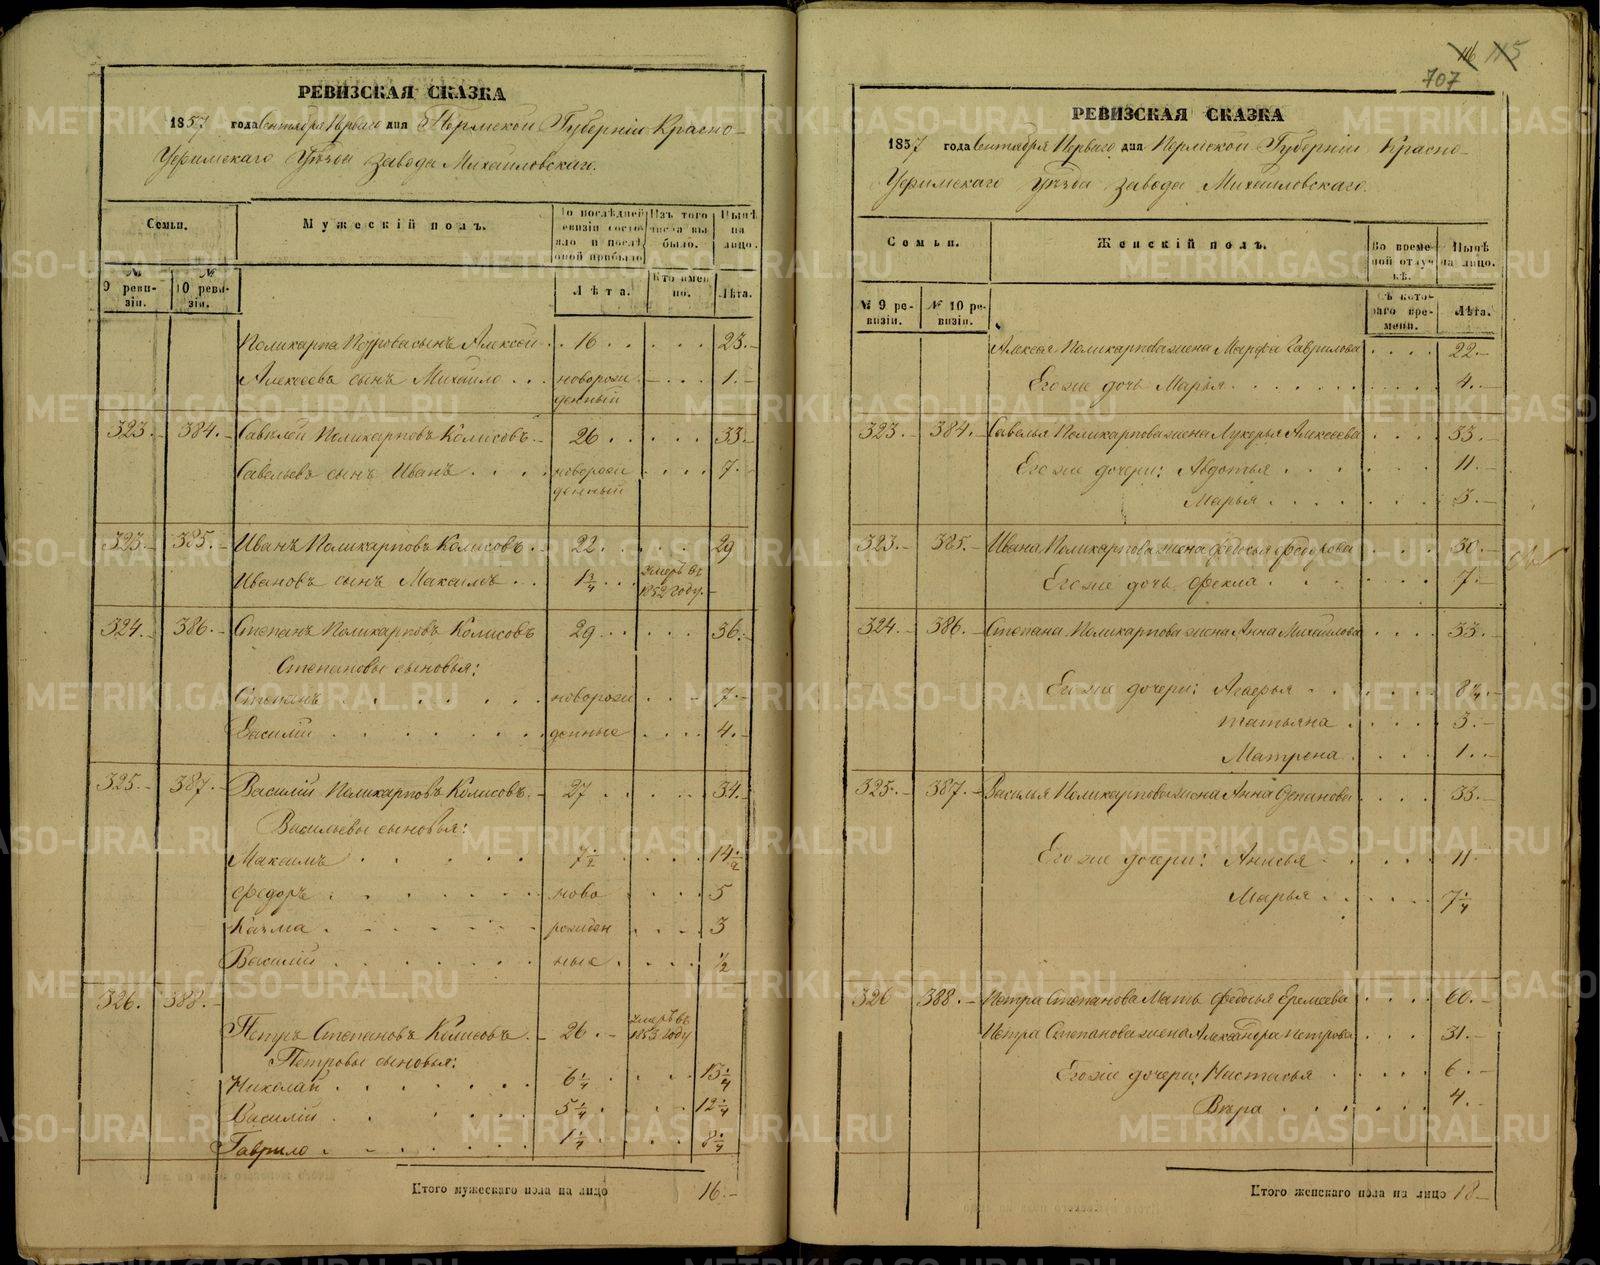 РЕВИЗСКАЯ СКАЗКА
1857 года Сентября Перваго дня Пермской Губерніи Красно-
Уфимскаго Уѣзда завода Михайловскаго.
Семьи.
№ 9 ревизіи.
№ 10 ревизіи.
Мужескій полъ.
По послѣдней ревизіи состояло и послѣ оной прибыло
Лѣта.
Изъ того числа выбыло.
Кто именно.
Нынѣ на лицо.
Лѣта.
Поликарпа Петрова сынъ Алексѣй 16 23.
Алексѣевъ сынъ Михайло новорожденный 1.
323. 384. Савелій Поликарповъ Колисовъ 26 33.
Савельевъ сынъ Иванъ новорожденный 7.
323. 385. Иванъ Поликарповъ Колисовъ 22. 29
Ивановъ сынъ Максимъ 1 3/4 умеръ въ 1852 году.
324. 386. Степанъ Поликарповъ Колисовъ 29 36.
Степановы сыновья:
Степанъ новорож 7.
Василій денные 4.
325. 387. Василій Поликарповъ Колисовъ 27 34.
Васильевы сыновья:
Максимъ 7 1/2 14 1/2
Федоръ ново 5
Казма рожден 3
Василій ные 1/2
326. 388.
Петръ Степановъ Колисовъ 26 умеръ въ 1853 году
Петровы сыновья:
Николай 6 1/4 13 1/4
Василій 5 1/4 12 1/4
Гаврило 1 1/4 8 1/4
Итого мужескаго пола на лицо 16.
116 115
707
РЕВИЗСКАЯ СКАЗКА
1857 года Сентября Перваго дня Пермской Губерніи Красно-
Уфимскаго Уѣзда завода Михайловскаго.
Семьи.
№ 9 ревизіи.
№ 10 ревизіи.
Женскій полъ.
Во временной отлучкѣ.
Съ котораго времени.
Нынѣ на лицо.
Лѣта.
Алексѣя Поликарпова жена Марфа Гаврилова 22.
Его же дочь Марья 4.
323. 384. Савелья Поликарпова жена Лукерья Алексѣева 33.
Его же дочери: Авдотья 11.
Марья 3.
323. 385. Ивана Поликарпова жена Федосья Федорова 30.
Его же дочь Фекла 7.
324. 386. Степана Поликарпова жена Анна Михайлова 33.
Его же дочери: Агаѳья 8 1/4
Татьяна 3.
Матрена 1.
325. 387. Василья Поликарпова жена Анна Степанова 33.
Его же дочери: Анисья 11
Марья 7 1/4
326 388. Петра Степанова Мать Федосья Еремѣева 60.
Петра Степанова жена Александра Петрова 31.
Его же дочери: Настасья 6.
Вѣра 4.
Итого женскаго пола на лицо 18
METRIKI.GASO-URAL.RU